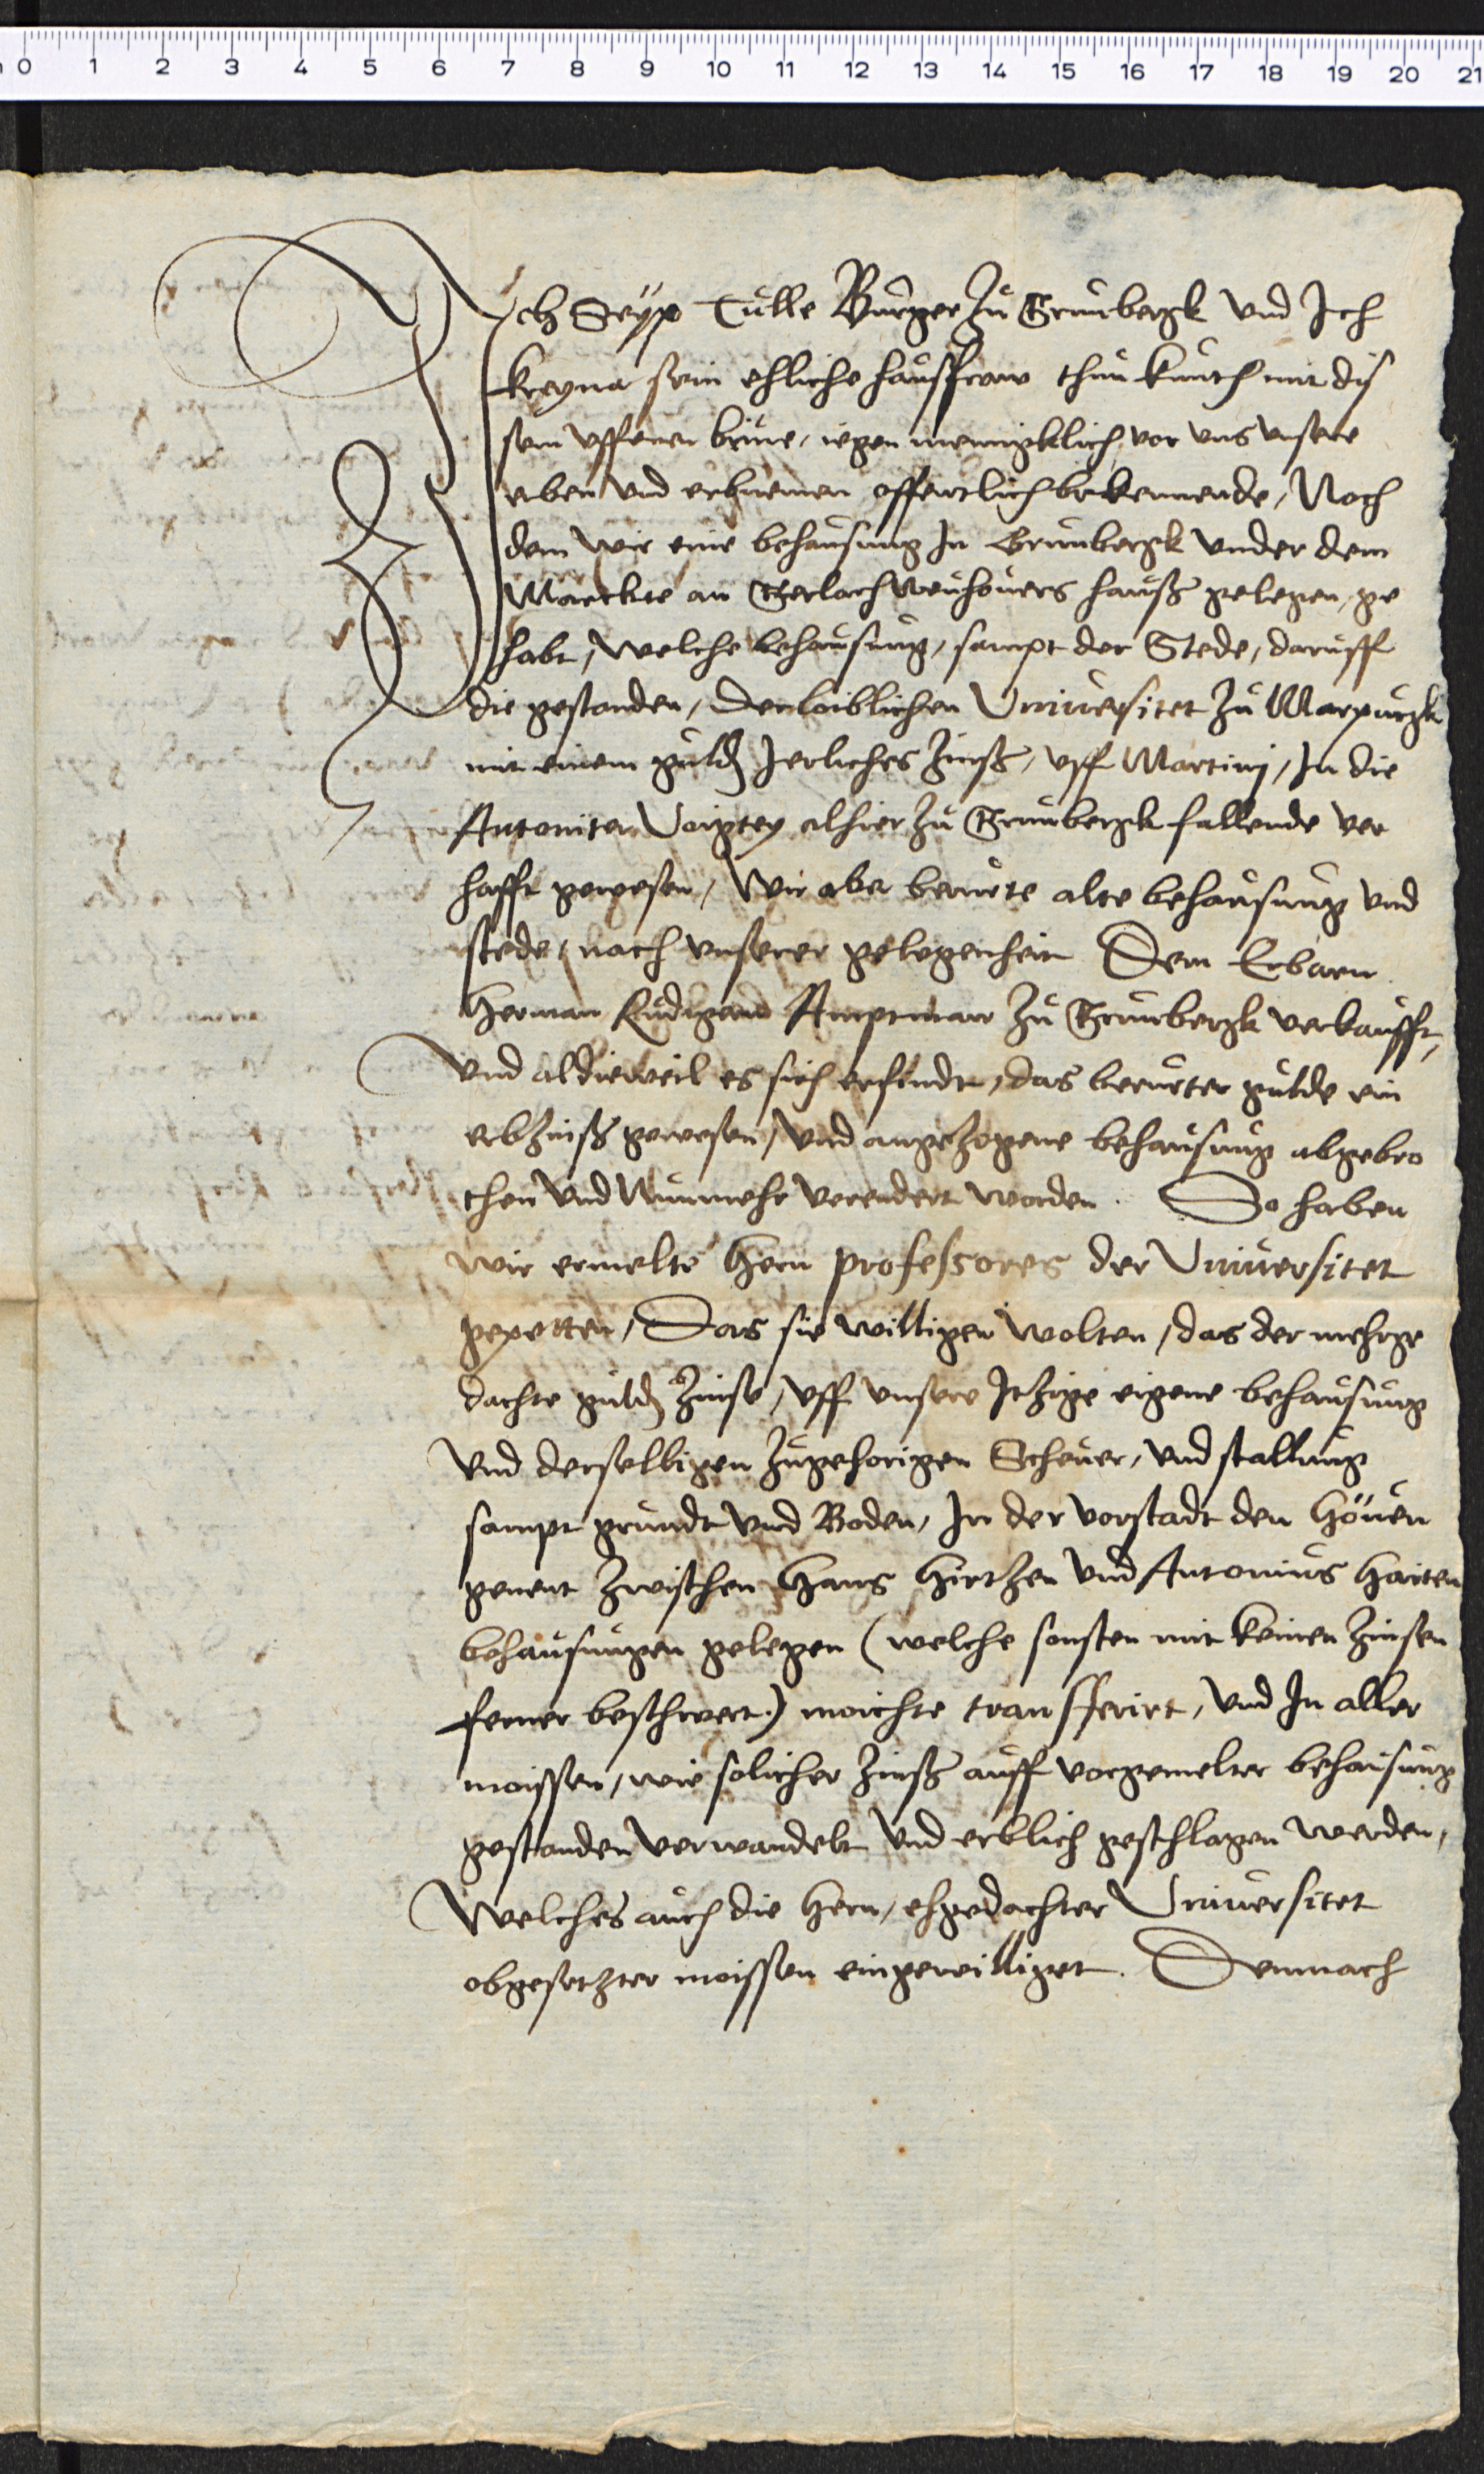 0 1 2 3 4 5 6 7 8 9 10 11 12 13 14 15 16 17 18 19 20 21
Ich Seÿp Tulle Burger zu Grunbergk vnd Ich
Kreyna sein ehliche haussfraw thun kunth mit dis
sem vffenen briue, iegen mennigklich vor vns vnsere
erben vnd erbnemen offentlich bekennende, Noch
dem wir eine behausung In Grunbergk vnder dem
Marckte an Gerlach Weuhouers hauß gelegen, ge
habt, welche behausung, sampt der Stede, daruff
die gestanden, der loiblichen Vniuersitet zu Marpurgk
mit einem guld Jerliches zinß, vff Martinj, In die
Antoniter Voigtey alhier zu Grunbergk fallende ver
hafft gewesen, Wir aber berurte alte behausung vnd
stede, nach vnserer gelegenheit Dem Erbarn
Herman Rudigern Amptman zu Grunbergk verkaufft,
vnd aldieweil es sich erfindt, das berurter gulde ein
erbzinß gewesen, vnd angezogene behausung abgebro
chen vnd Nunmehr verendert worden. So haben
wir ermelte Hern professores der Vniuersitet
gepetten, Das sie willigen wolten, das der mehrge
dachte guld Zinse, vff vnsere Itzige eigene behausung
vnd derselbigen zugehorigen Scheuer, vnd stallung
sampt grundt vnd Boden, In der vorstadt den Höuen
genent zwischen Hans Hirtzen vnd Antonius Haiten
behausungen gelegen (welche sonsten mit keinen zinsen
ferner beschwert.) moichte transfferirt, vnd In aller
moissen, wie solicher zinß auff vorgemelter behausung
gestanden verwandelt vnd erblich geschlagen werden,
Welches auch die Hern, ehgedachter Vniuersitet
obgesetzter moissen eingewilliget. Demnach